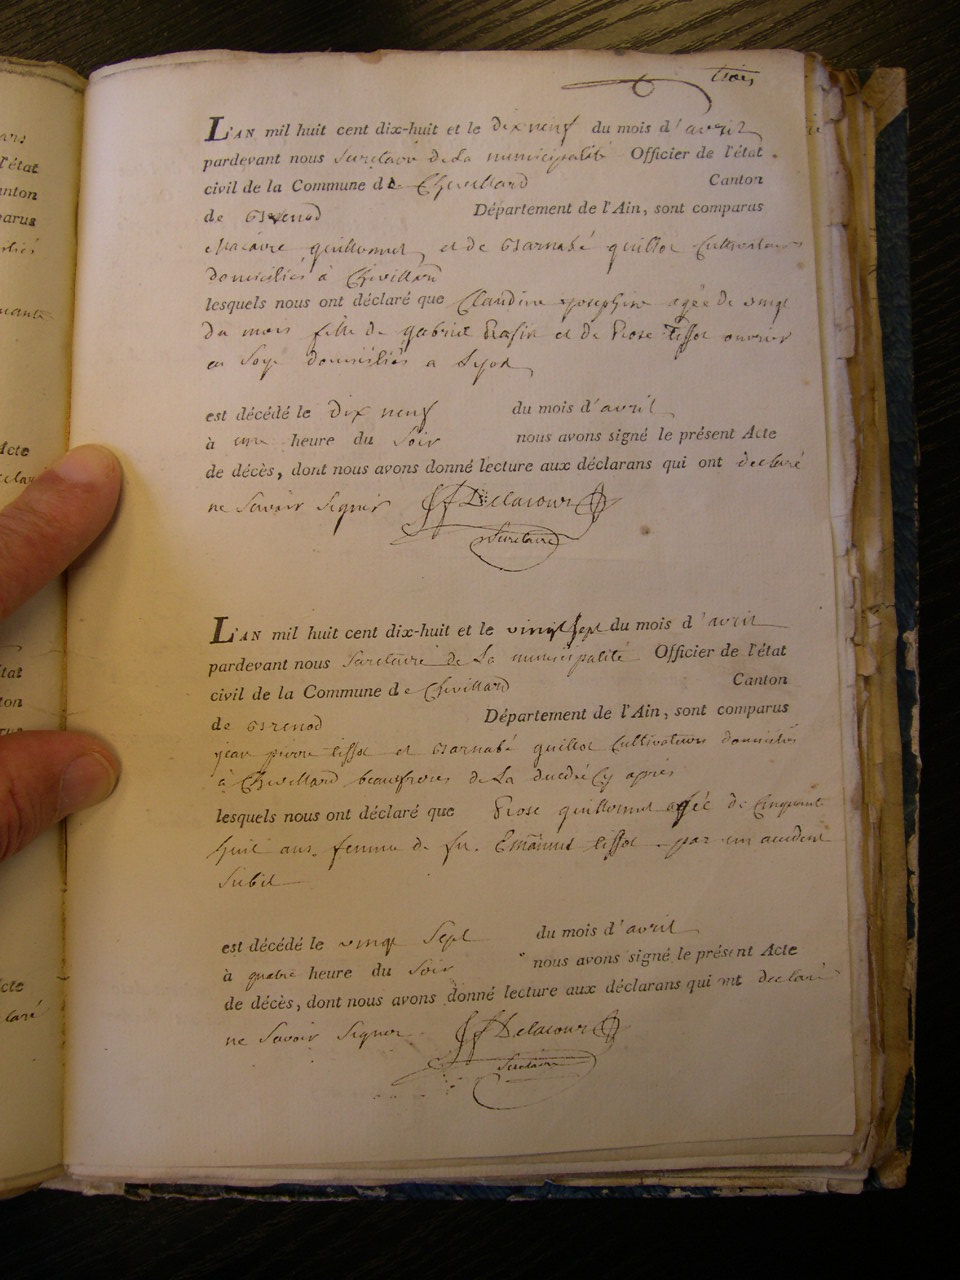 trois
L'AN mil huit cent dix-huit et le dix neuf du mois d'avril
pardevant nous Secretaire de La municipalité Officier de l'état
civil de la Commune de Chevillard Canton
de Brenod Département de l'Ain, sont comparus
guillermet et de Barnabé guillot Cultivateurs
domiciliés à Chevillard
lesquels nous ont déclaré que Claudine Josephine agée de vingt
du mois fille de gabriel et de Rose tissot ouvrier
en Soye domiciliés a Lyon
est décédé le dix neuf du mois d'avril
à une heure du Soir nous avons signé le présent Acte
de décès, dont nous avons donné lecture aux déclarans qui ont declaré
ne Savoir Signer Delacour
Secretaire
L'AN mil huit cent dix-huit et le vingt Sept du mois d'avril
pardevant nous Secretaire de La municipalité Officier de l'état
civil de la Commune de Chevillard Canton
de Brenod Département de l'Ain, sont comparus
jean pierre tissot et Barnabé guillot Cultivateurs domiciliés
à Chevillard beaufreres de La ducédée Cy après
lesquels nous ont déclaré que Rose guillermet agée de Cinquante
huit ans femme de fu. Emanuel tissot par un accident
Subit
est décédé le vingt Sept du mois d'avril
à quatre heure du Soir nous avons signé le présent Acte
de décès, dont nous avons donné lecture aux déclarans qui ont declaré
ne Savoir Signer Delacour
Secretaire
l'état
anton
parus
Acte